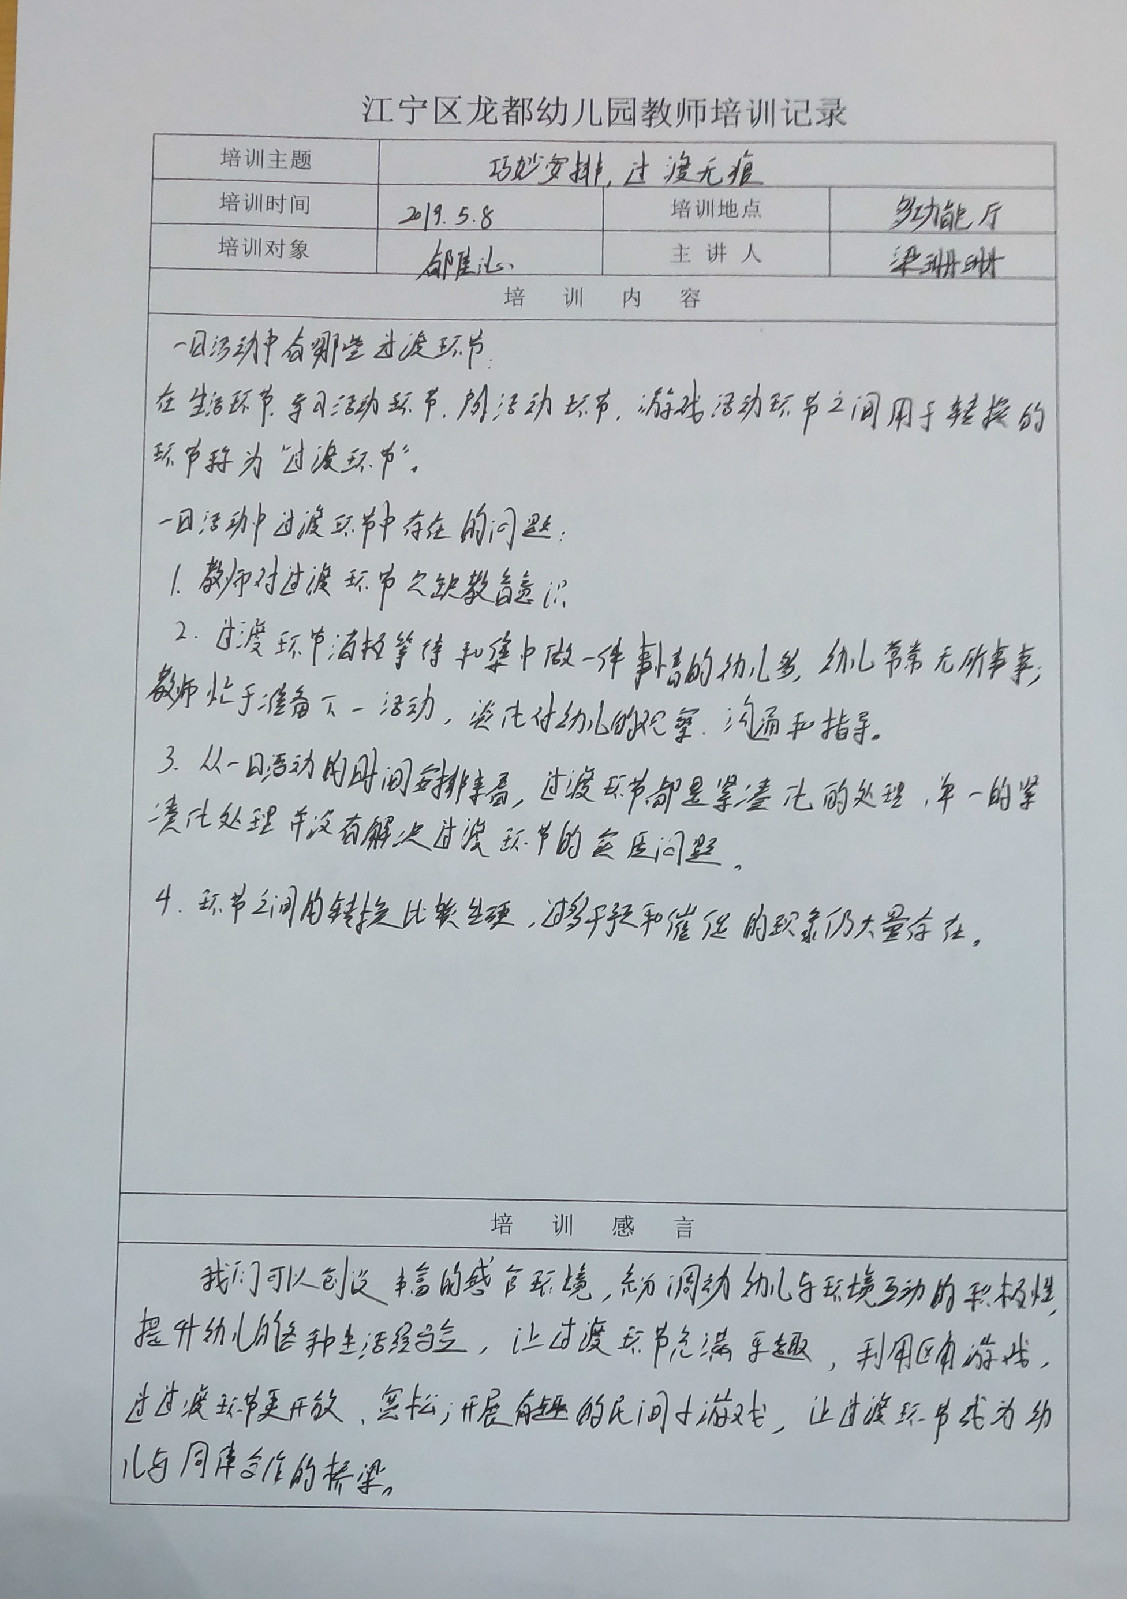 江宁区龙都幼儿园教师培训记录
培训主题 巧妙安排,过渡无痕
培训时间 2019.5.8 培训地点 多功能厅
培训对象 主讲人 梁珊珊
培训内容
一日活动中有哪些过渡环节:
在生活环节、学习活动环节、户外活动环节、游戏活动环节之间用于转换的
环节称为“过渡环节”。
一日活动中过渡环节中存在的问题:
1. 教师对过渡环节欠缺教育意识
2. 过渡环节消极等待和集中做一件事情的幼儿多,幼儿常常无所事事;
教师忙于准备下一活动,淡化对幼儿的观察、沟通和指导。
3. 从一日活动的时间安排来看,过渡环节都是紧凑化的处理,单一的紧
凑化处理并没有解决过渡环节的实质问题。
4. 环节之间的转换比较生硬,过多干预和催促的现象仍大量存在。
培训感言
我们可以创设丰富的感官环境,充分调动幼儿与环境互动的积极性,
提升幼儿的各种生活经验,让过渡环节充满乐趣,利用区角游戏,
过过渡环节更开放、宽松;开展有趣的民间小游戏,让过渡环节成为幼
儿与同伴合作的桥梁。